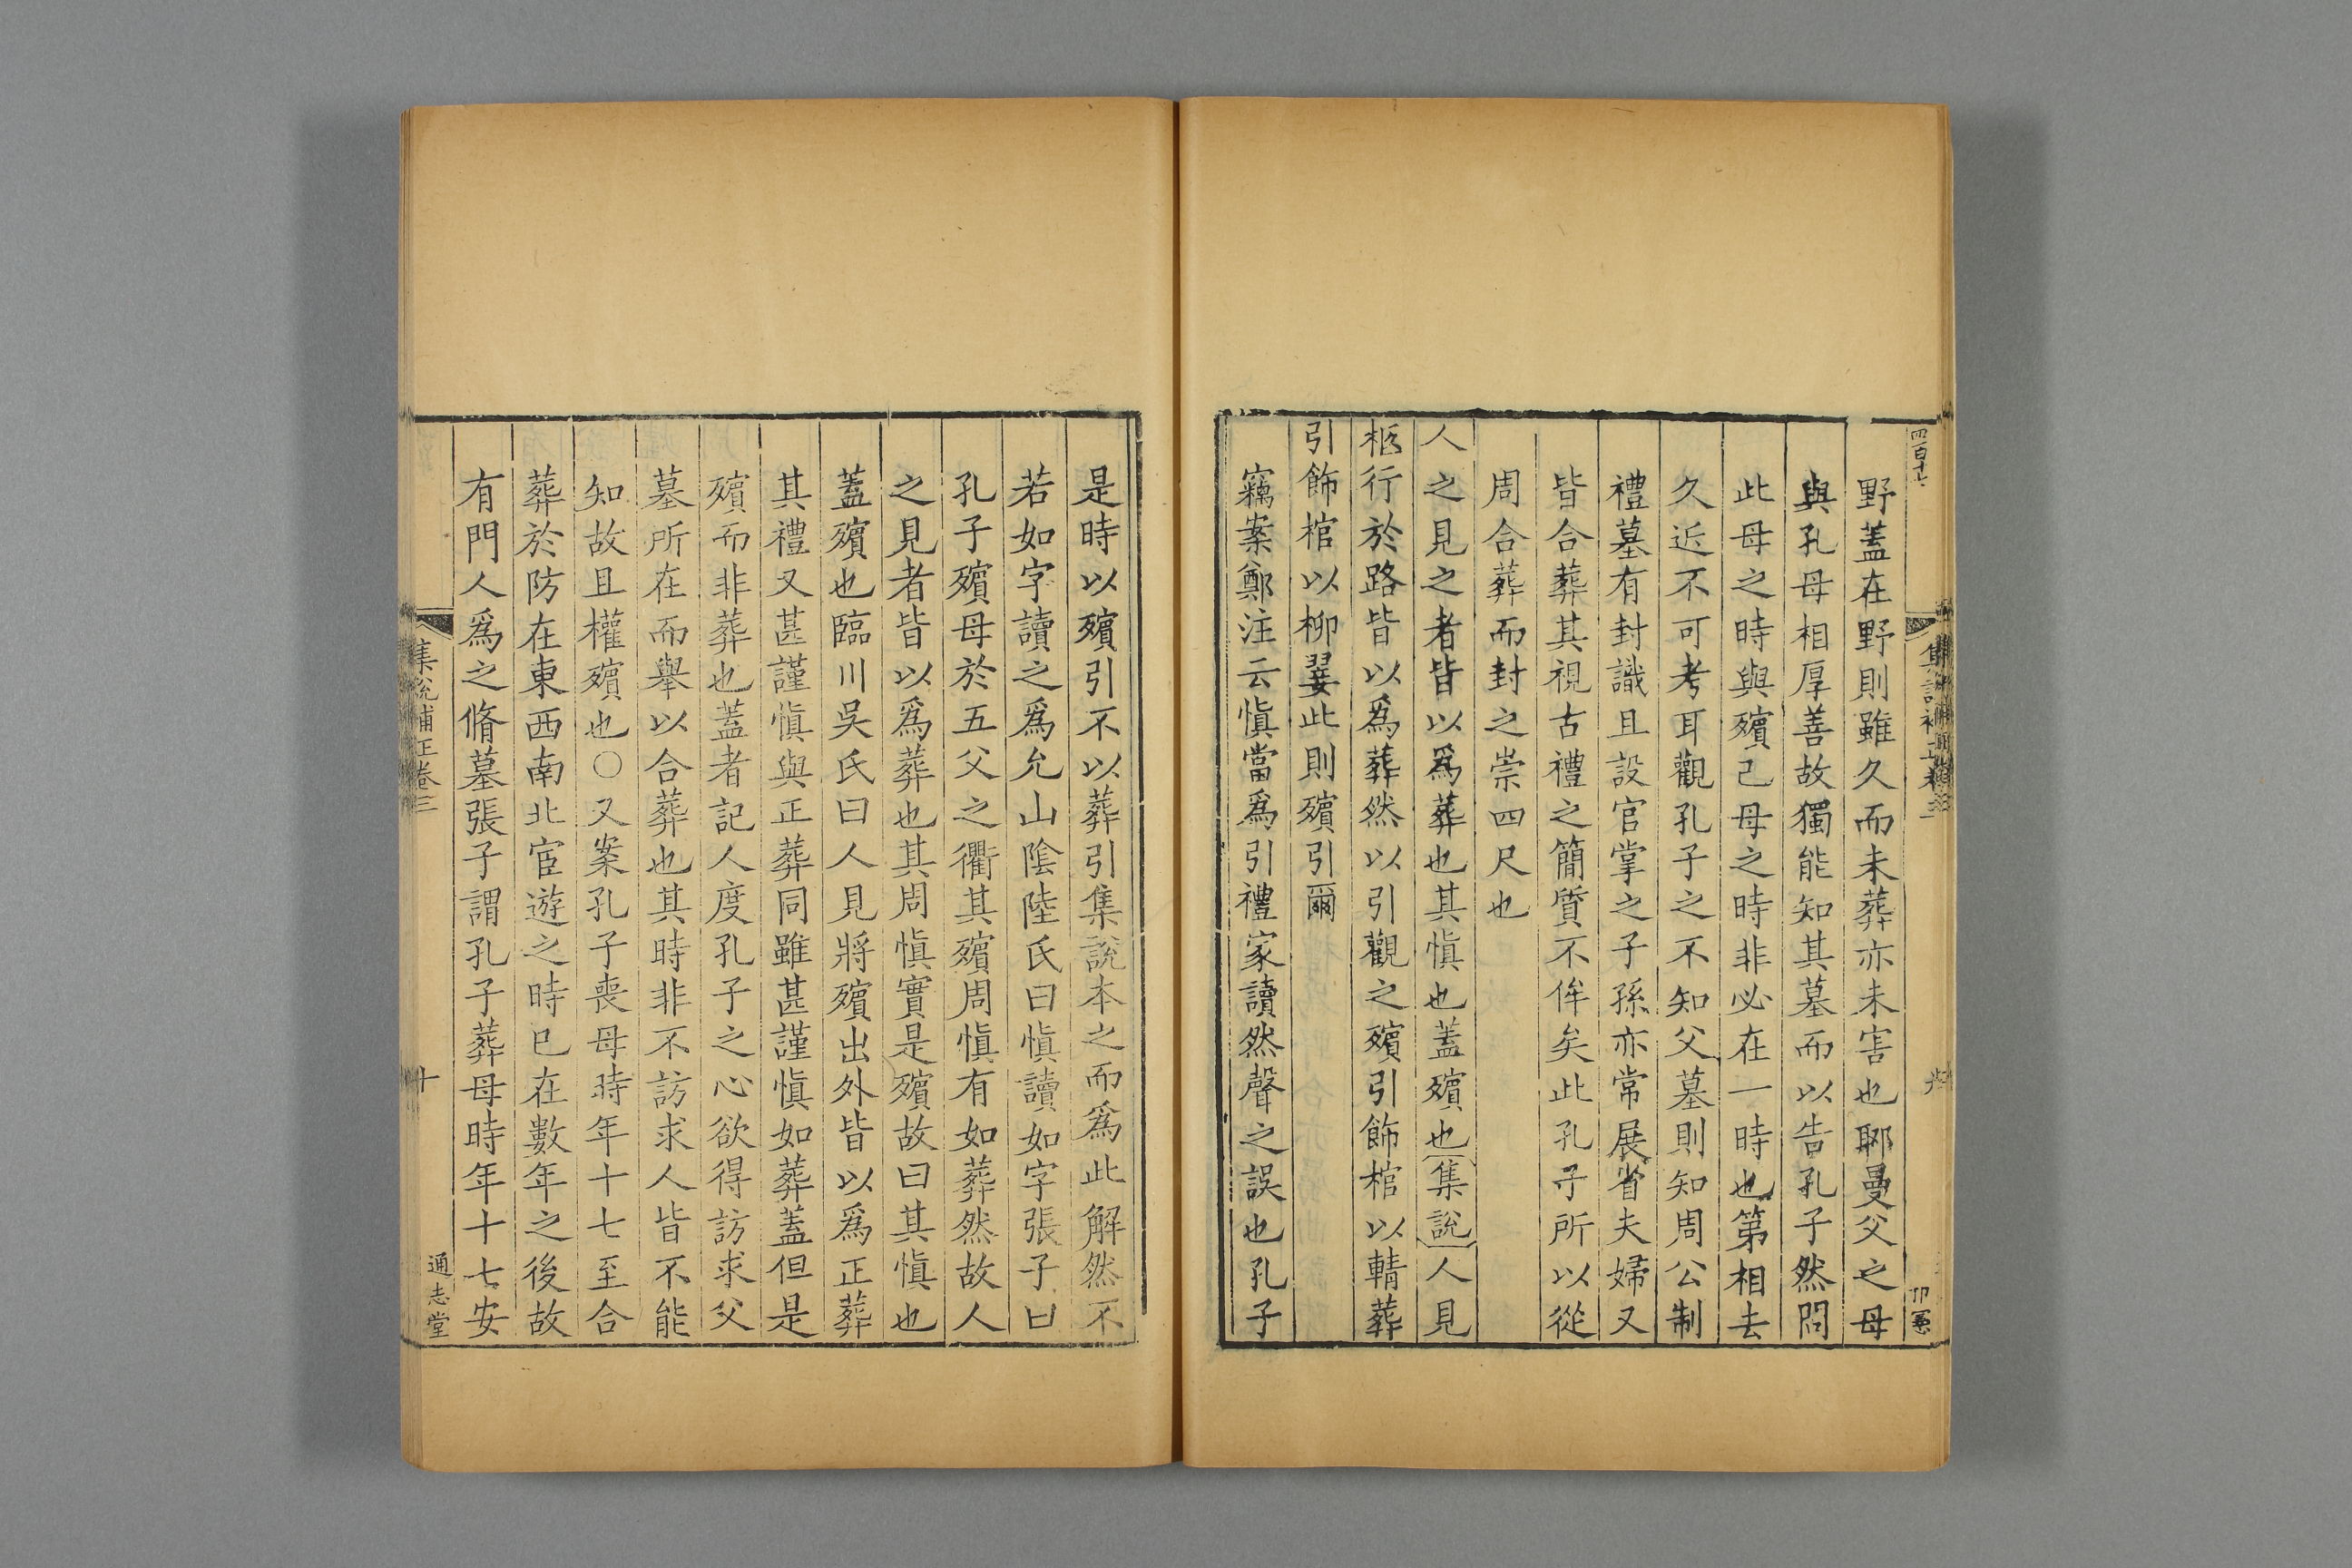 四百十六
野蓋在野則雖久而未葬亦未害也郰曼父之母
與孔母相厚善故獨能知其墓而以告孔子然問
此母之時與殯己母之時非必在一時也第相去
久近不可考耳觀孔子之不知父墓則知周公制
禮墓有封識且設官掌之子孫亦常展省夫婦又
皆合葬其視古禮之簡質不侔矣此孔子所以從
周合葬而封之崇四尺也
人之見之者皆以爲葬也其愼也蓋殯也集說人見
柩行於路皆以爲葬然以引觀之殯引飾棺以輤葬
引飾棺以柳翣此則殯引爾
竊案鄭注云愼當爲引禮家讀然聲之誤也孔子
是時以殯引不以葬引集說本之而爲此解然不
若如字讀之爲允山陰陸氏曰愼讀如字張子曰
孔子殯母於五父之衢其殯周愼有如葬然故人
之見者皆以爲葬也其周愼實是殯故曰其愼也
蓋殯也臨川吳氏曰人見將殯出外皆以爲正葬
其禮又甚謹愼與正葬同雖甚謹愼如葬蓋但是
殯而非葬也蓋者記人度孔子之心欲得訪求父
墓所在而舉以合葬也其時非不訪求人皆不能
知故且權殯也○又案孔子喪母時年十七至合
葬於防在東西南北宦遊之時已在數年之後故
有門人爲之脩墓張子謂孔子葬母時年十七安
集說補正卷三
十
通志堂